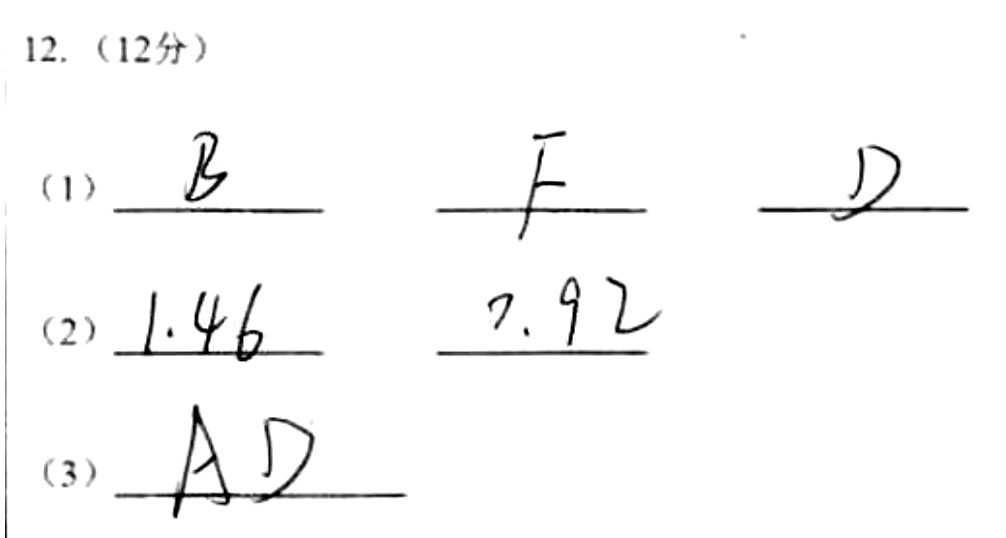 12.（12分）
（1） B F D
（2） 1.46 7.92
（3） AD